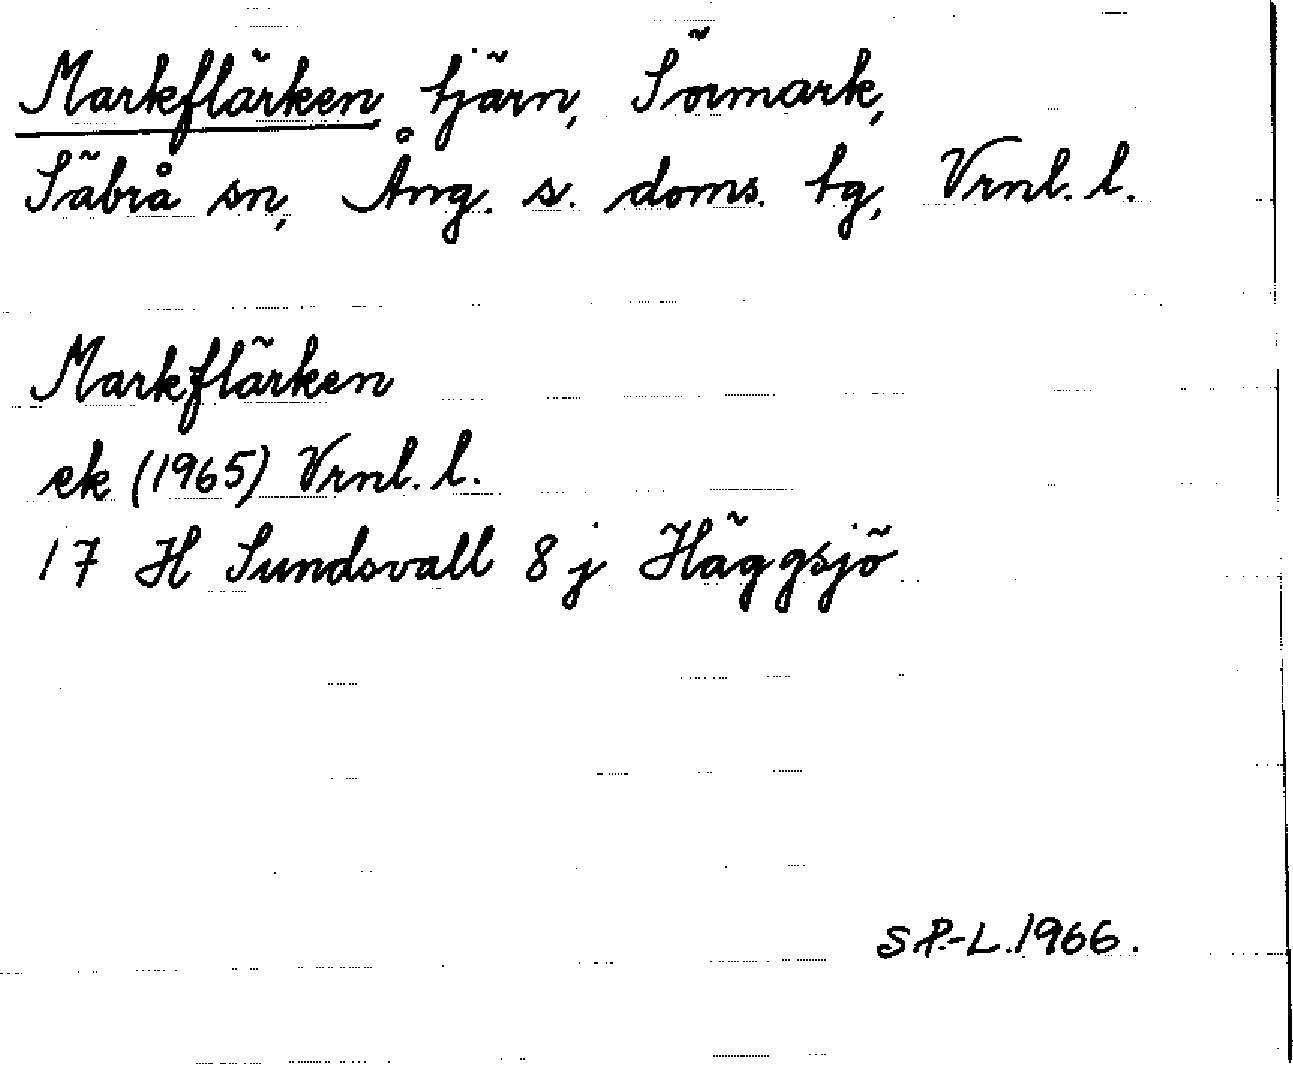 Markflärken tjärn, Sörmark,
Säbrå sn, Ång. s. doms. tg, Vrnl. l.
Markflärken
ek (1965) Vrnl. l.
17 H Sundsvall 8 j Häggsjö
SP.-L. 1966.